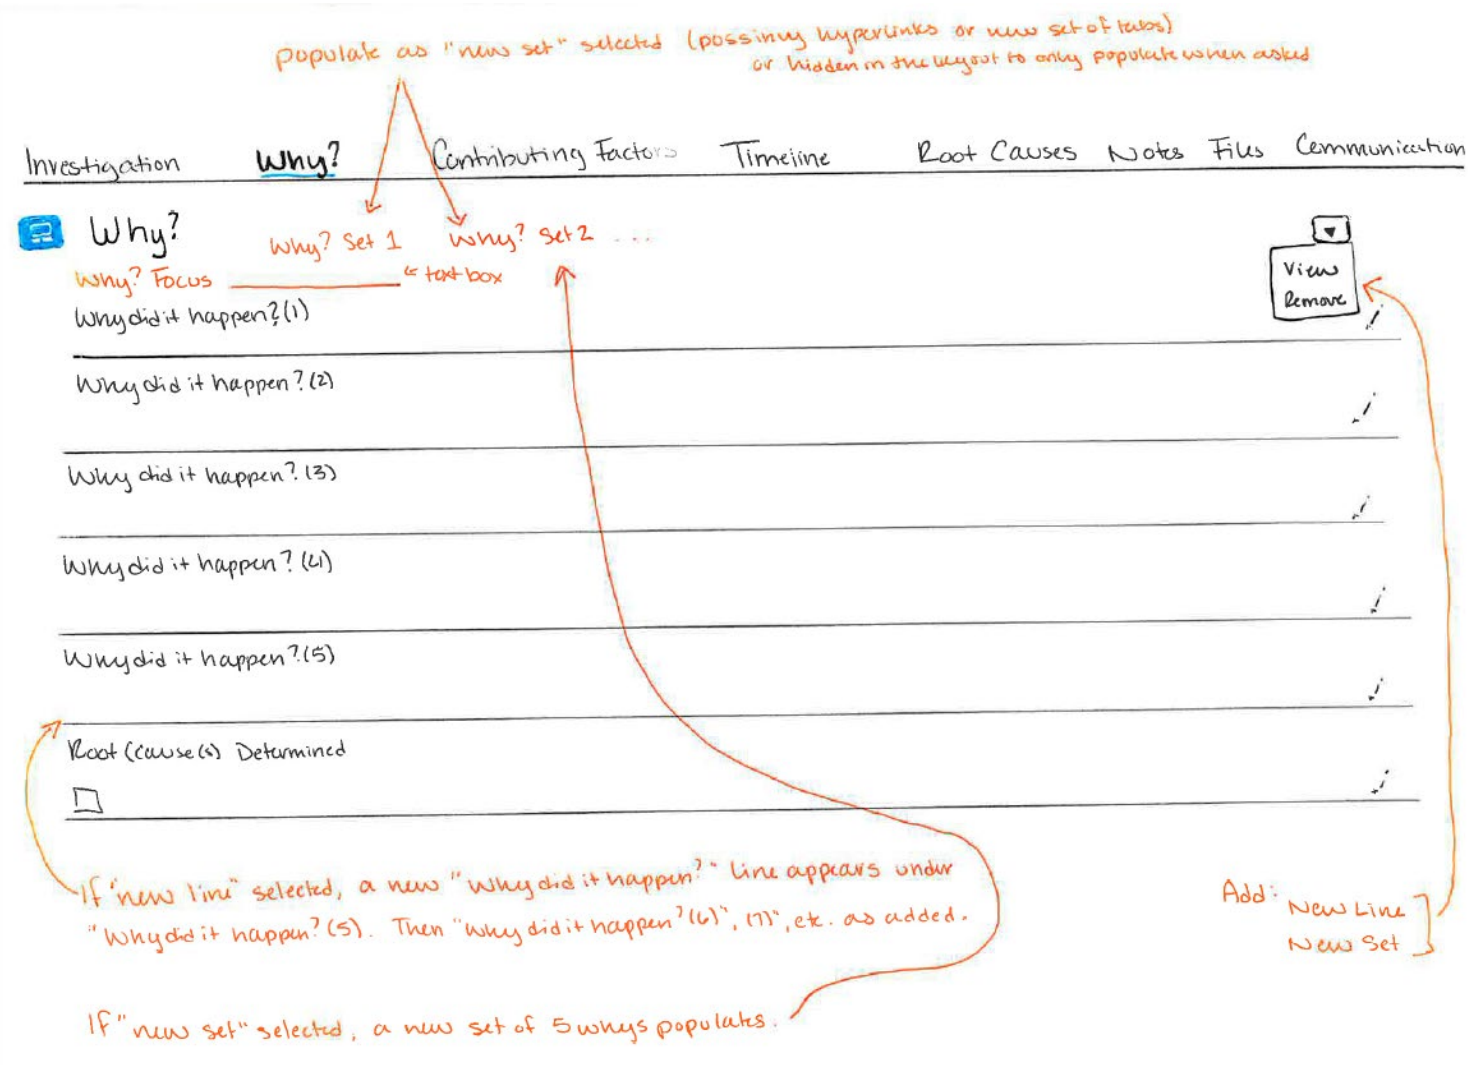 populate as "new set" selected (possibly hyperlinks or new set of tabs)
or hidden in the layout to only populate when asked
Investigation Why? Contributing Factors Timeline Root Causes Notes Files Communication
Why? Why? Set 1 Why? Set 2 ...
Why? Focus ← text box
View
Remove
Why did it happen? (1)
Why did it happen? (2)
Why did it happen? (3)
Why did it happen? (4)
Why did it happen? (5)
Root (Cause(s) Determined
If "new line" selected, a new "Why did it happen?" Line appears under
"Why did it happen? (5). Then "Why did it happen? (6)", (7)", etc. as added.
Add: New Line
New Set
If "new set" selected, a new set of 5 whys populates.